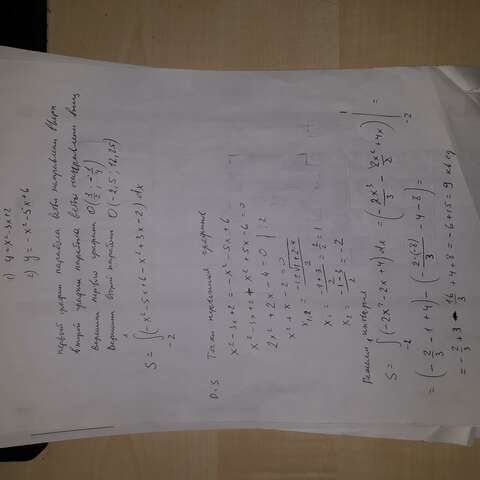 1) y = x² - 3x + 2
2) y = -x² - 5x + 6
первый график парабола ветви направлены вверх
второй график парабола ветви направлены вниз
вершина первой параболы O(3/2; -1/4)
вершина второй параболы O(-2,5; 12,25)
S = ∫₋₂¹ (-x² - 5x + 6 - x² + 3x - 2) dx
Точки пересечения графиков
x² - 3x + 2 = -x² - 5x + 6
x² - 3x + 2 + x² + 5x - 6 = 0
2x² + 2x - 4 = 0 | :2
x² + x - 2 = 0
x₁,₂ = (-1 ± √(1 + 2·4))/2
x₁ = (-1 + 3)/2 = 2/2 = 1
x₂ = (-1 - 3)/2 = -2
Решаем интеграл
S = ∫₋₂¹ (-2x² - 2x + 4) dx = (-2x³/3 - 2x²/2 + 4x) |₋₂¹ =
= (-2/3 - 1 + 4) - (-2·(-8)/3 - 4 - 8) =
= -2/3 + 3 - 16/3 + 4 + 8 = -6 + 15 = 9 кв ед